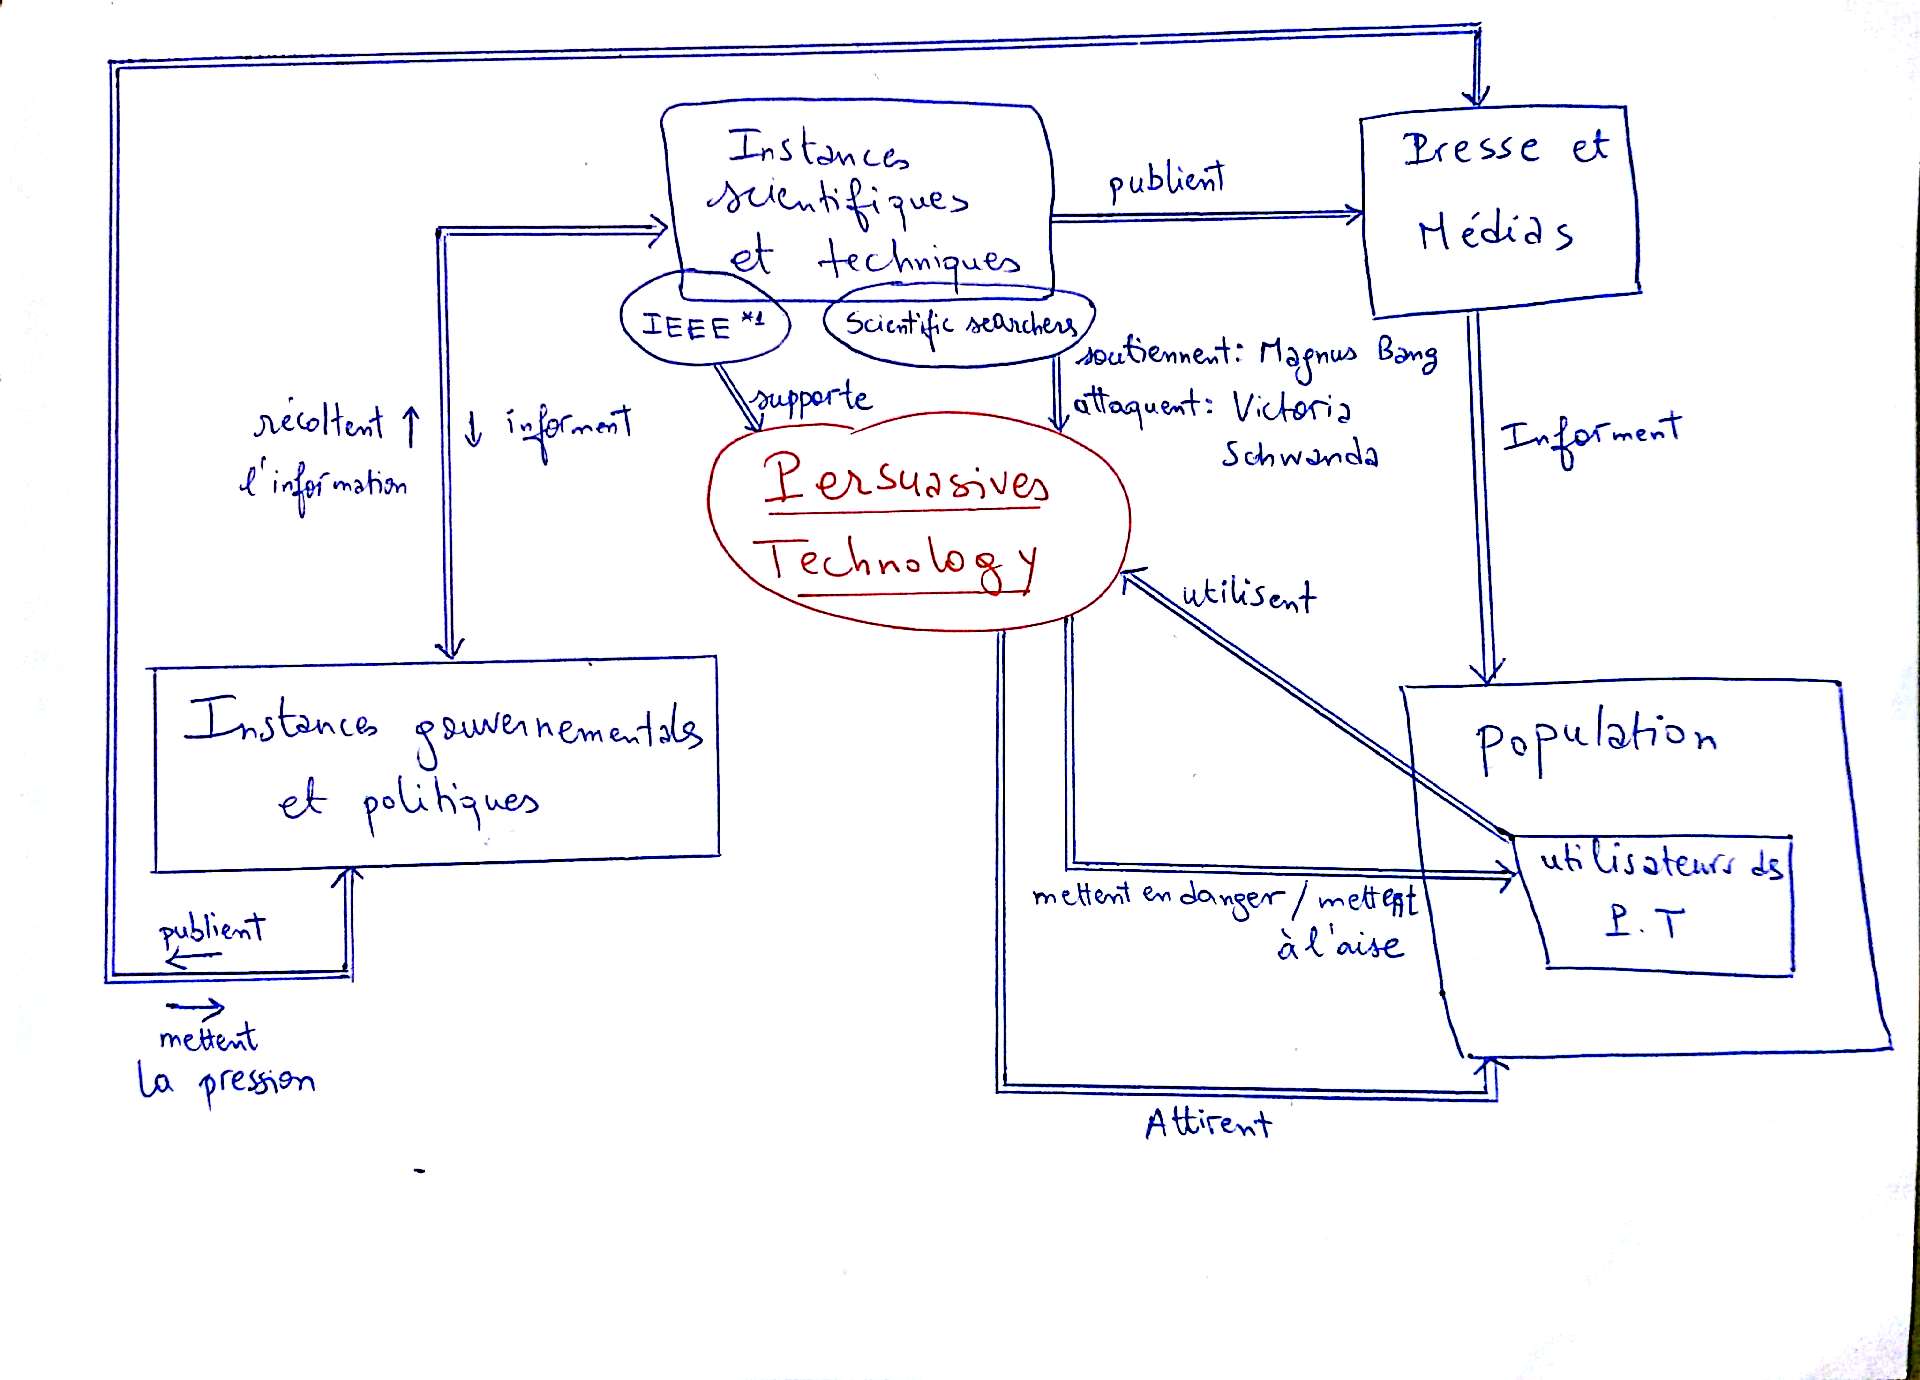 Instances
scientifiques
et techniques
IEEE *1
Scientific searchers
publient
Presse et
Médias
soutiennent: Magnus Bang
attaquent: Victoria
Schwanda
supporte
récoltent ↑
l'information
↓ informent
Informent
Persuasives
Technology
utilisent
Instances gouvernementals
et politiques
population
utilisateurs ds
P.T
mettent en danger / mettent
à l'aise
publient
←
→
mettent
la pression
Attirent